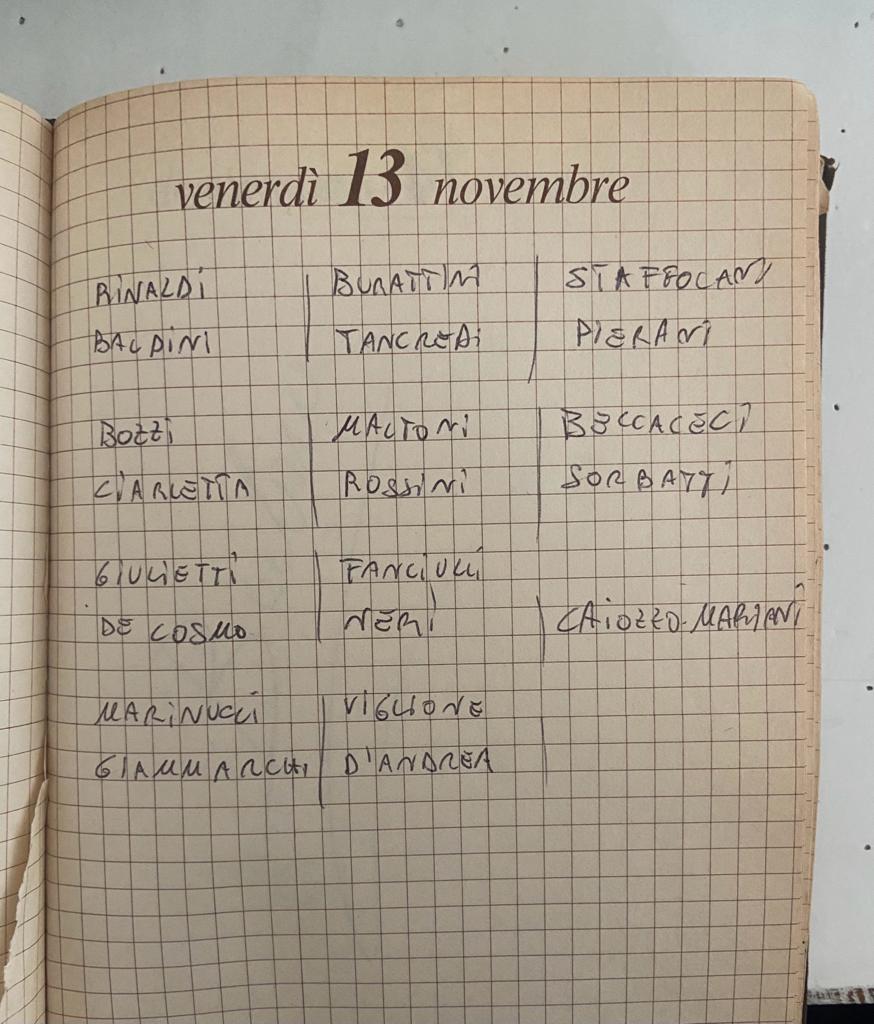 venerdì 13 novembre
RINALDI BURATTINI STAFFOLANI
BALDINI TANCREDI PIERANI
BOZZI MALTONI BECCACECI
CIARLETTA ROSSINI SORBATTI
GIULIETTI FANCIULLI
DE COSMO NERI CAIOZZO-MARIANI
MARINUCCI VIGLIONE
GIAMMARCHI D'ANDREA